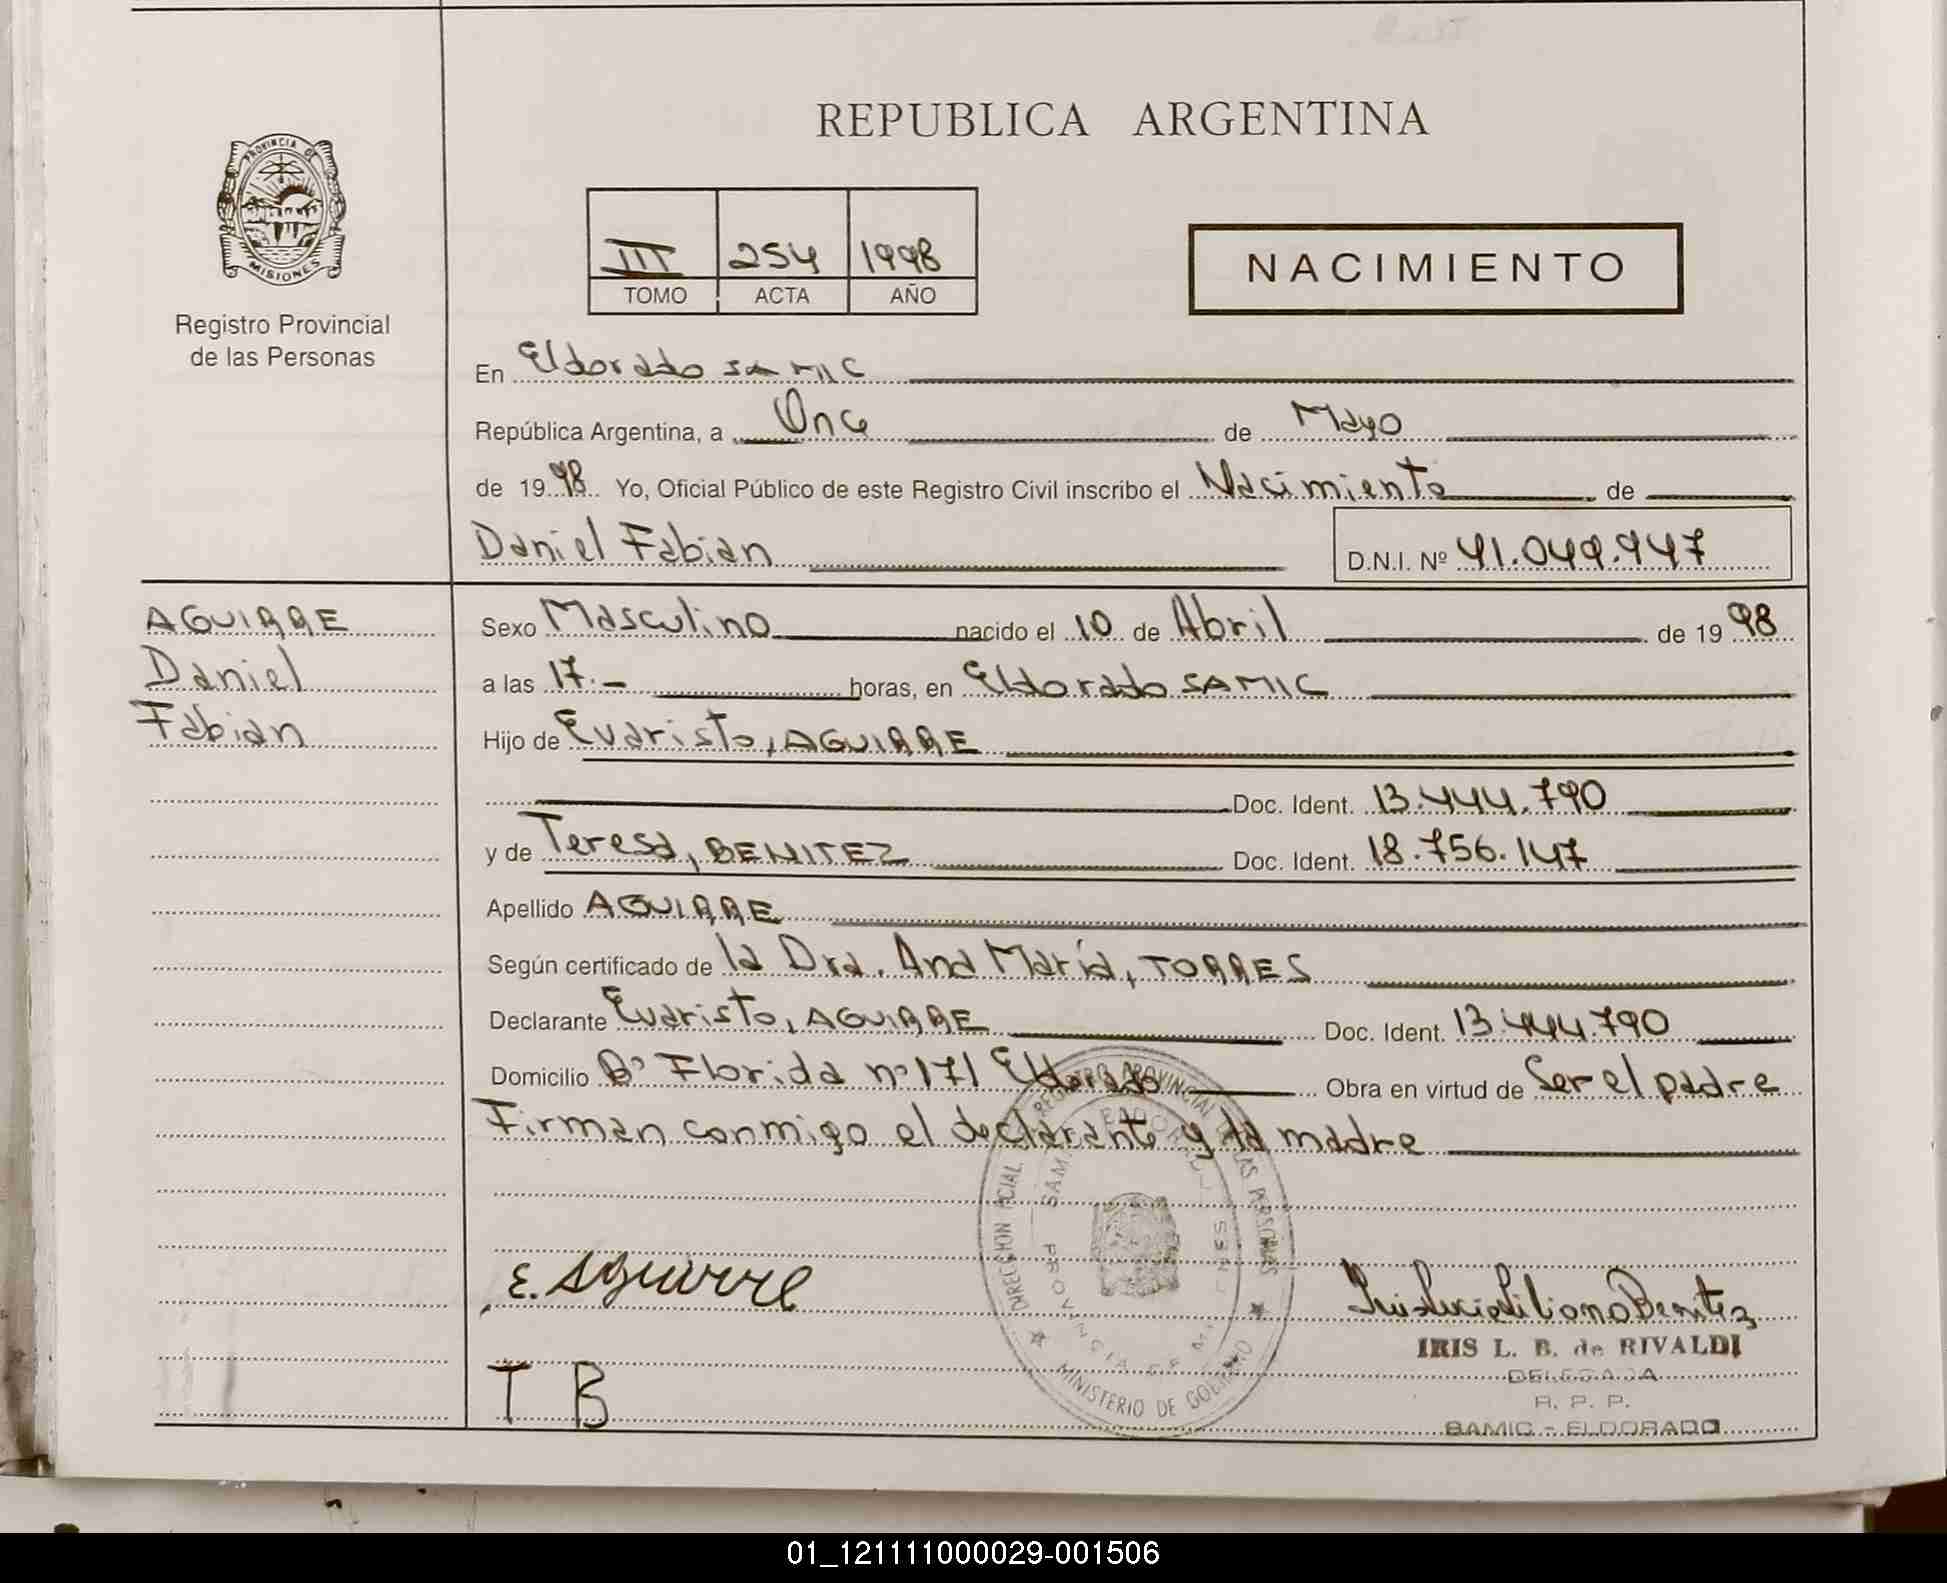 REPUBLICA ARGENTINA
PROVINCIA DE
MISIONES
Registro Provincial
de las Personas
III 254 1998
TOMO ACTA AÑO
NACIMIENTO
En Eldorado SAMIC
República Argentina, a Once de Mayo
de 1998 Yo, Oficial Público de este Registro Civil inscribo el Nacimiento de
Daniel Fabian D.N.I. Nº 41.049.947
AGUIRRE
Daniel
Fabian
Sexo Masculino nacido el 10 de Abril de 1998
a las 17.- horas, en Eldorado SAMIC
Hijo de Evaristo, AGUIRRE
Doc. Ident. 13.444.790
y de Teresa, BENITEZ Doc. Ident. 18.756.147
Apellido AGUIRRE
Según certificado de la Dra. Ana María, TORRES
Declarante Evaristo, AGUIRRE Doc. Ident. 13.444.790
Domicilio Bº Florida nº 171 Eldorado Obra en virtud de Ser el padre
Firman conmigo el declarante y la madre
E. Aguirre
T B
DIRECCION REGISTRO PROVINCIAL DE LAS PERSONAS
MINISTERIO DE GOBIERNO
SAMIC ELDORADO
PROVINCIA DE MISIONES
IRIS L. B. de RIVALDI
DELEGADA
R. P. P.
SAMIC - ELDORADO
01_121111000029-001506